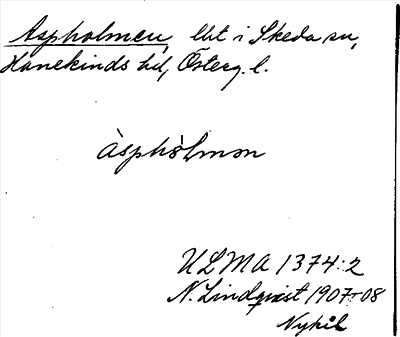 Aspholmen, lht i Skeda sn,
Hanekinds hd, Österg. l.
àsphòlmən
ULMA 1374:2
N. Lindqvist 1907-08
Nykil